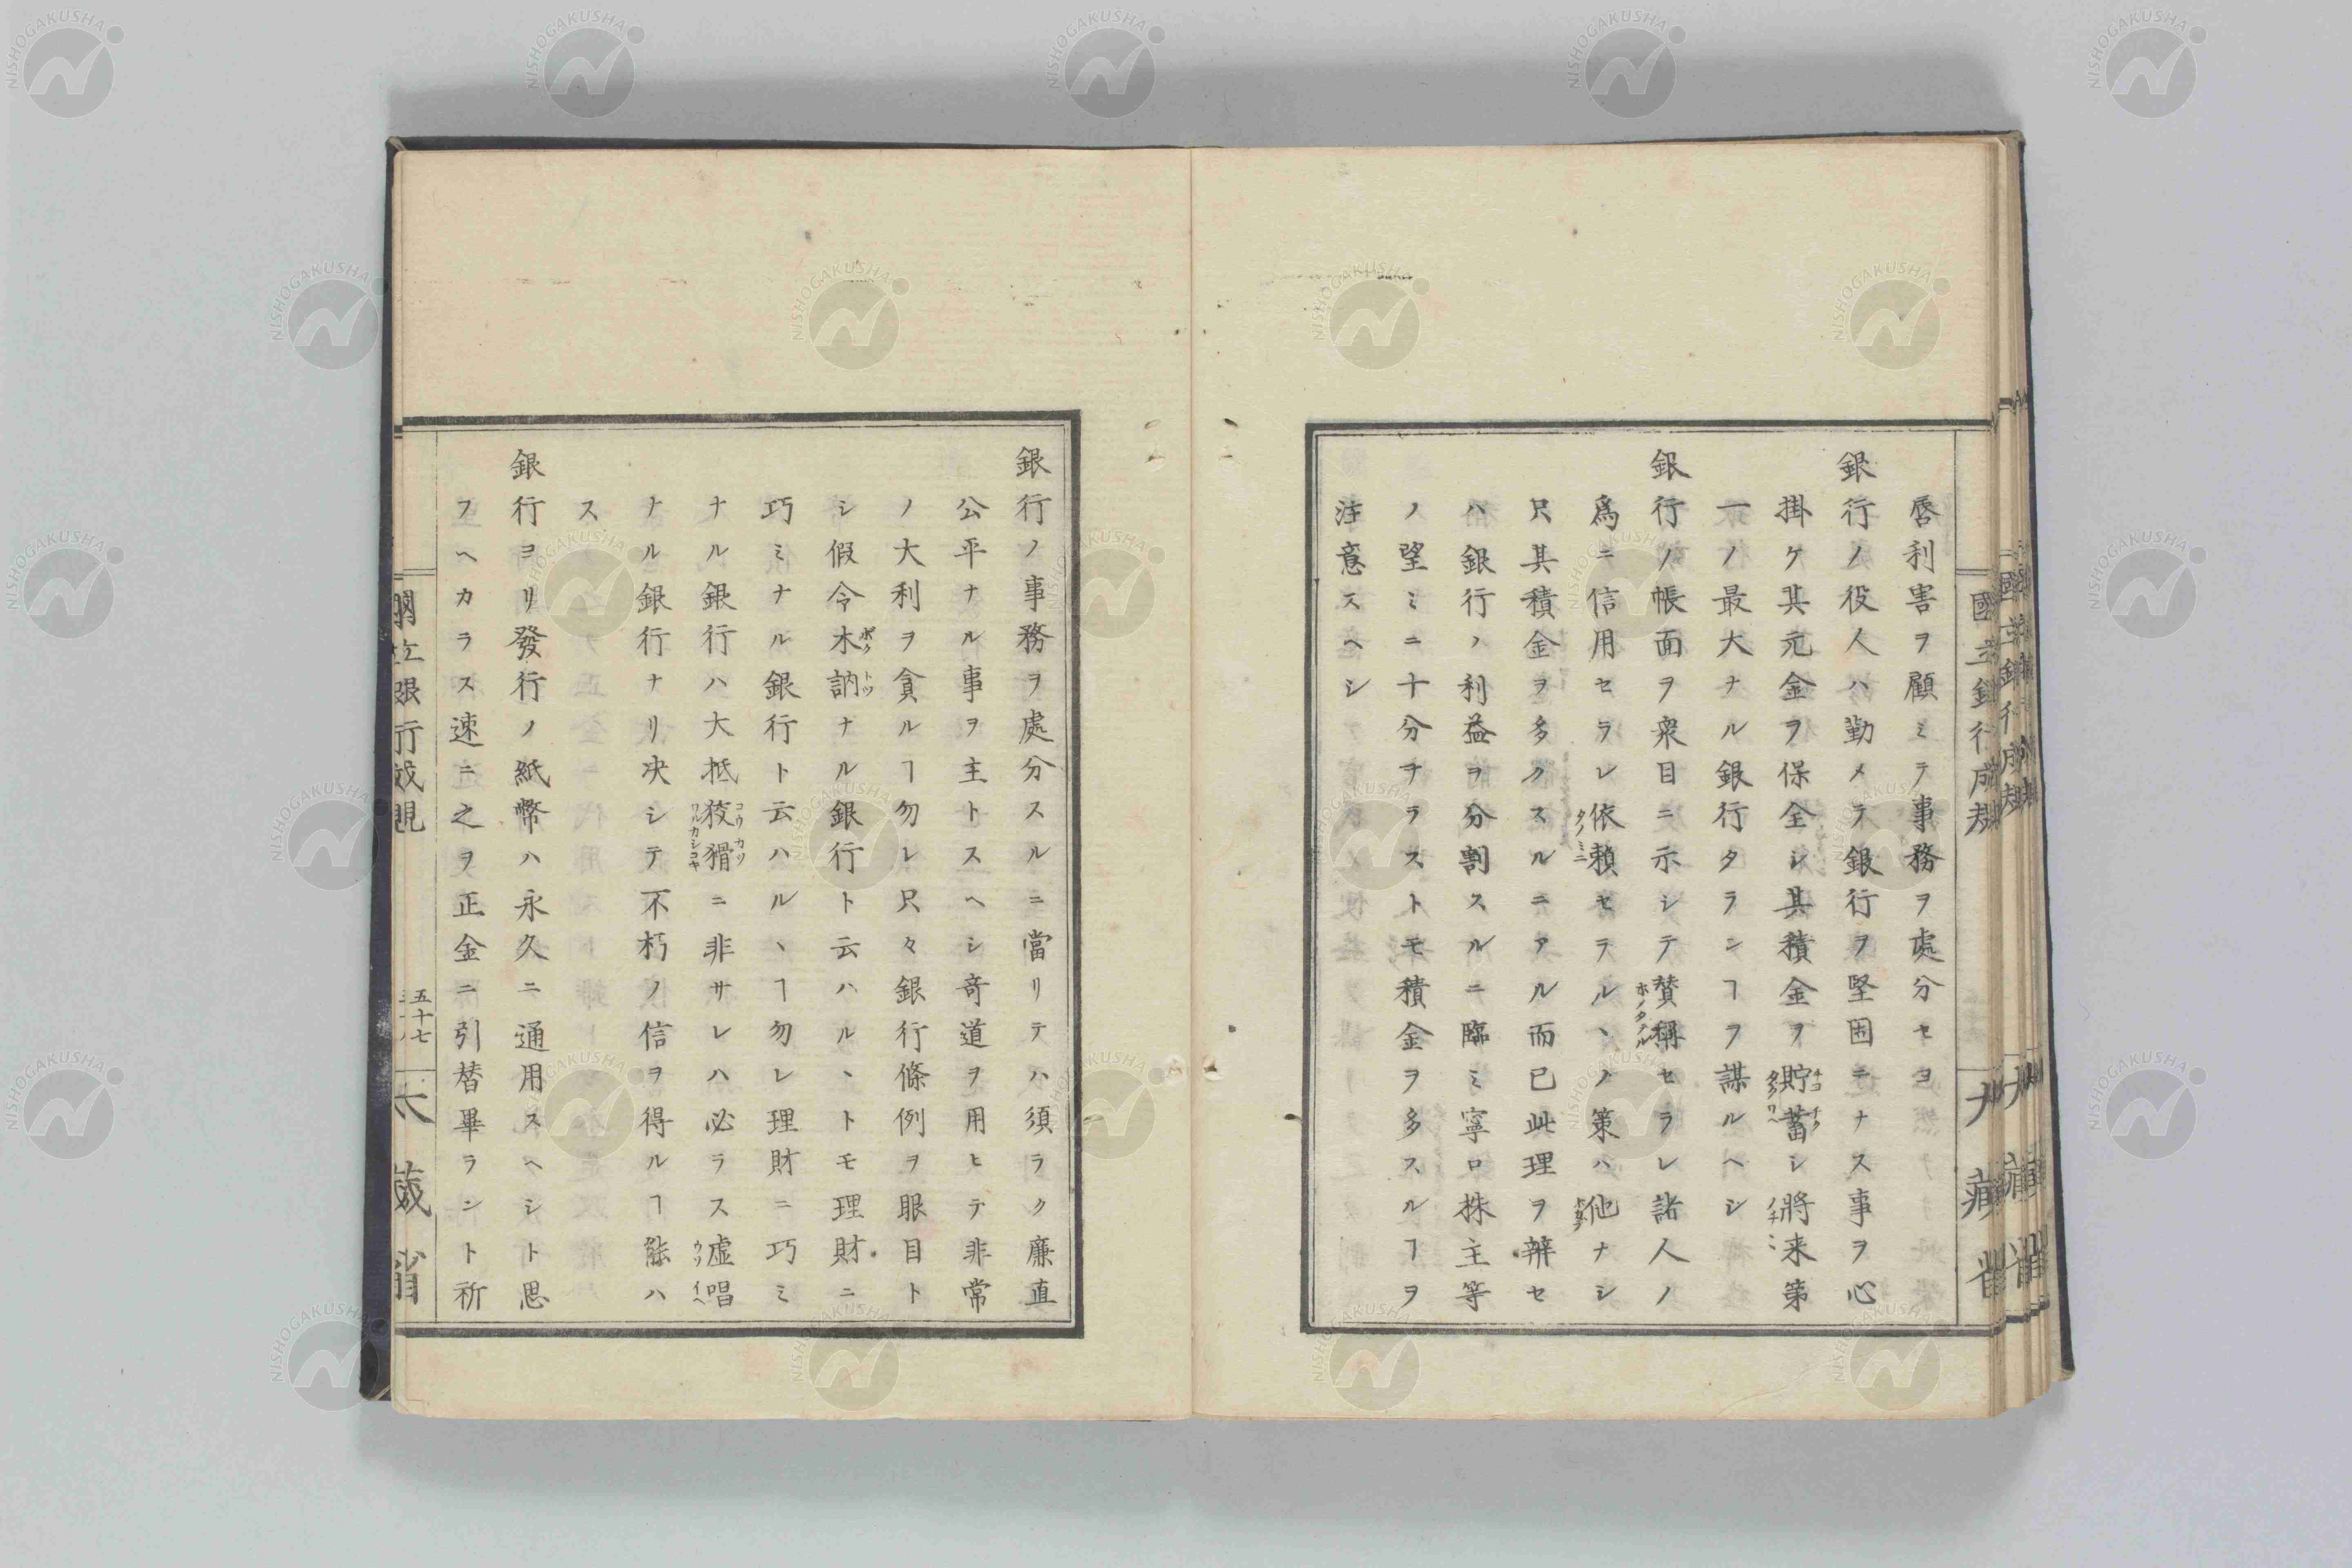 脣利害ヲ顧ミテ事務ヲ處分セヨ
銀行ノ役人ハ勤メテ銀行ヲ堅固ニナス事ヲ心
掛ケ其元金ヲ保全シ其積金ヲ貯蓄シ將来第
一ノ最大ナル銀行タランヿヲ謀ルヘシ
銀行ノ帳面ヲ衆目ニ示シテ賛稱セラレ諸人ノ
爲ニ信用セラレ依頼セラルヽノ策ハ他ナシ
只其積金ヲ多クスルニアル而已此理ヲ辨セ
ハ銀行ノ利益ヲ分割スルニ臨ミ寧ロ株主等
ノ望ミニ十分ナラストモ積金ヲ多スルヿヲ
注意スヘシ
銀行ノ事務ヲ處分スルニ當リテハ須ラク廉直
公平ナル事ヲ主トスヘシ奇道ヲ用ヒテ非常
ノ大利ヲ貪ルヿ勿レ只々銀行條例ヲ眼目ト
シ假令木訥ナル銀行ト云ハルヽトモ理財ニ
巧ミナル銀行ト云ハルヽヿ勿レ理財ニ巧ミ
ナル銀行ハ大抵狡猾ニ非サレハ必ラス虚唱
ナル銀行ナリ决シテ不朽ノ信ヲ得ルヿ能ハ
ス
銀行ヨリ發行ノ紙幣ハ永久ニ通用スヘシト思
フヘカラス速ニ之ヲ正金ニ引替畢ラント祈
五十七